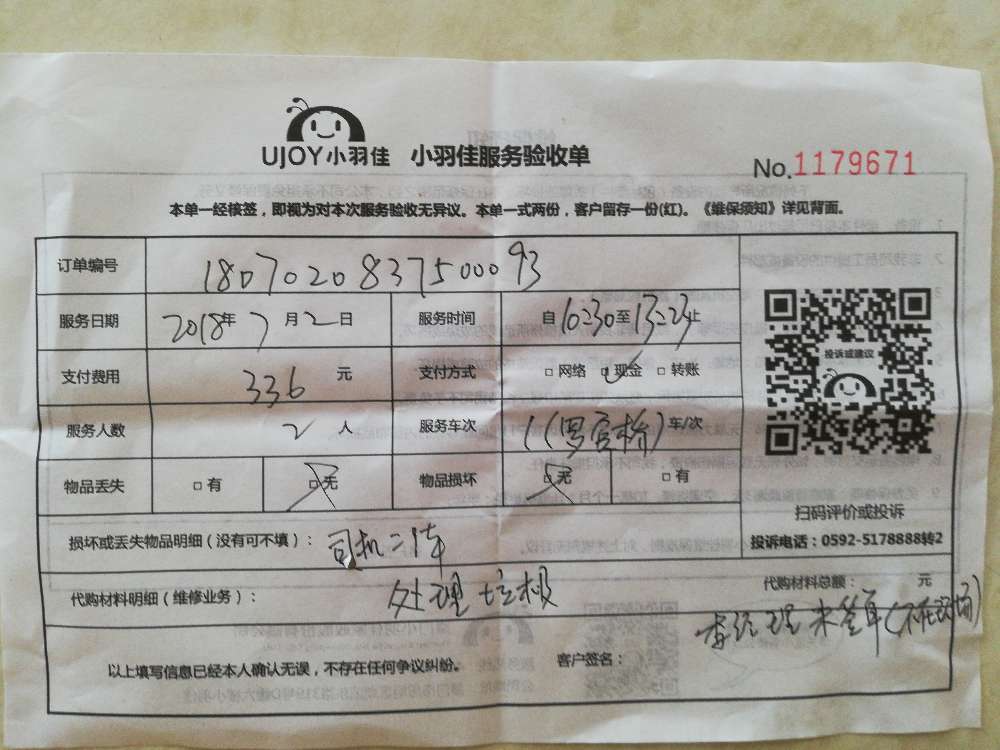 UJOY小羽佳 小羽佳服务验收单
No.1179671
本单一经核签，即视为对本次服务验收无异议。本单一式两份，客户留存一份(红)。《维保须知》详见背面。
订单编号 1807020837500093
服务日期 2018年7月2日 服务时间 自10:30至13:23止
支付费用 336元 支付方式 □网络 □现金 □转账
投诉或建议
服务人数 2人 服务车次 1 车/次
物品丢失 □有 □无 物品损坏 □无 □有
扫码评价或投诉
损坏或丢失物品明细（没有可不填）： 司机二体
投诉电话：0592-5178888转2
代购材料明细（维修业务）： 处理垃圾
代购材料总额： 元
李经理未签单(不在现场)
以上填写信息已经本人确认无误，不存在任何争议纠纷。 客户签名：